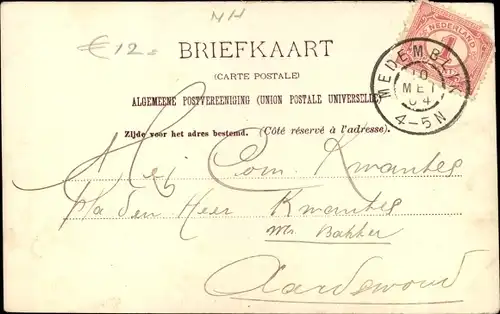 NH
€ 12.=
BRIEFKAART
(CARTE POSTALE)
ALGEMEENE POSTVEREENIGING (UNION POSTALE UNIVERSELLE)
Zijde voor het adres bestemd. (Côté réservé à l'adresse).
NEDERLAND
1
CENT
MEDEMBLIK
10
MEI
04
4-5N
Com. Kwantes
p/a den Heer Kwantes
Mr Bakker